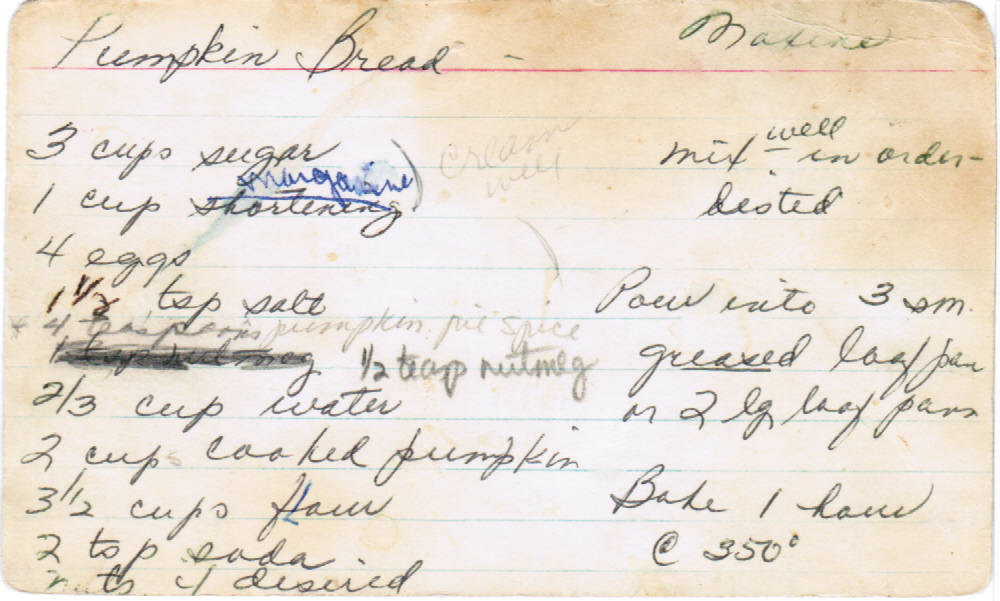 Pumpkin Bread - Maxine
3 cups sugar
margarine
1 cup shortening
cream
well
4 eggs
1 1/2 tsp salt
* 4 teaspoons pumpkin pie spice
1 tsp nutmeg 1/2 teasp nutmeg
2/3 cup water
2 cups cooked pumpkin
3 1/2 cups flour
2 tsp soda
nuts if desired
mix well in order
listed
Pour into 3 sm.
greased loaf pan
or 2 lg loaf pans
Bake 1 hour
@ 350°